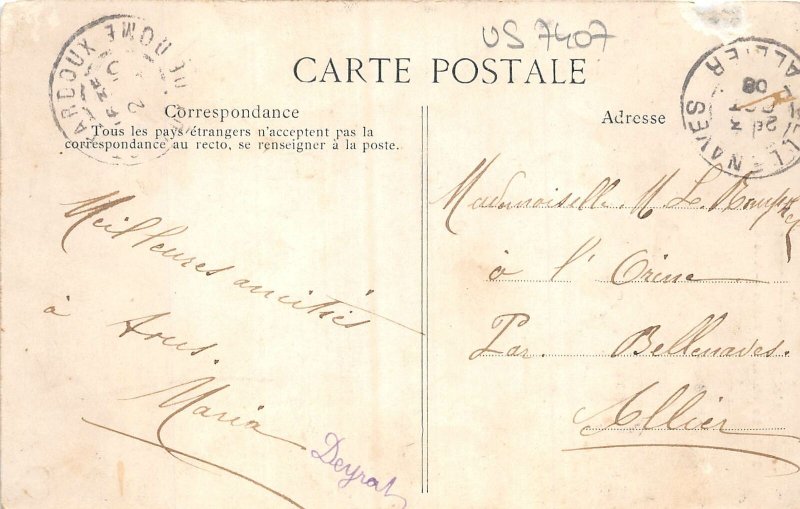 US 7407
CARTE POSTALE
Correspondance
Tous les pays étrangers n'acceptent pas la
correspondance au recto, se renseigner à la poste.
Meilleures amitiés
à tous.
Maria
Deyrat
Adresse
Mademoiselle. M L.
à l'Orine
Par. Bellenaves.
Allier
ARDOUX
DE DOME
ALLIER
08